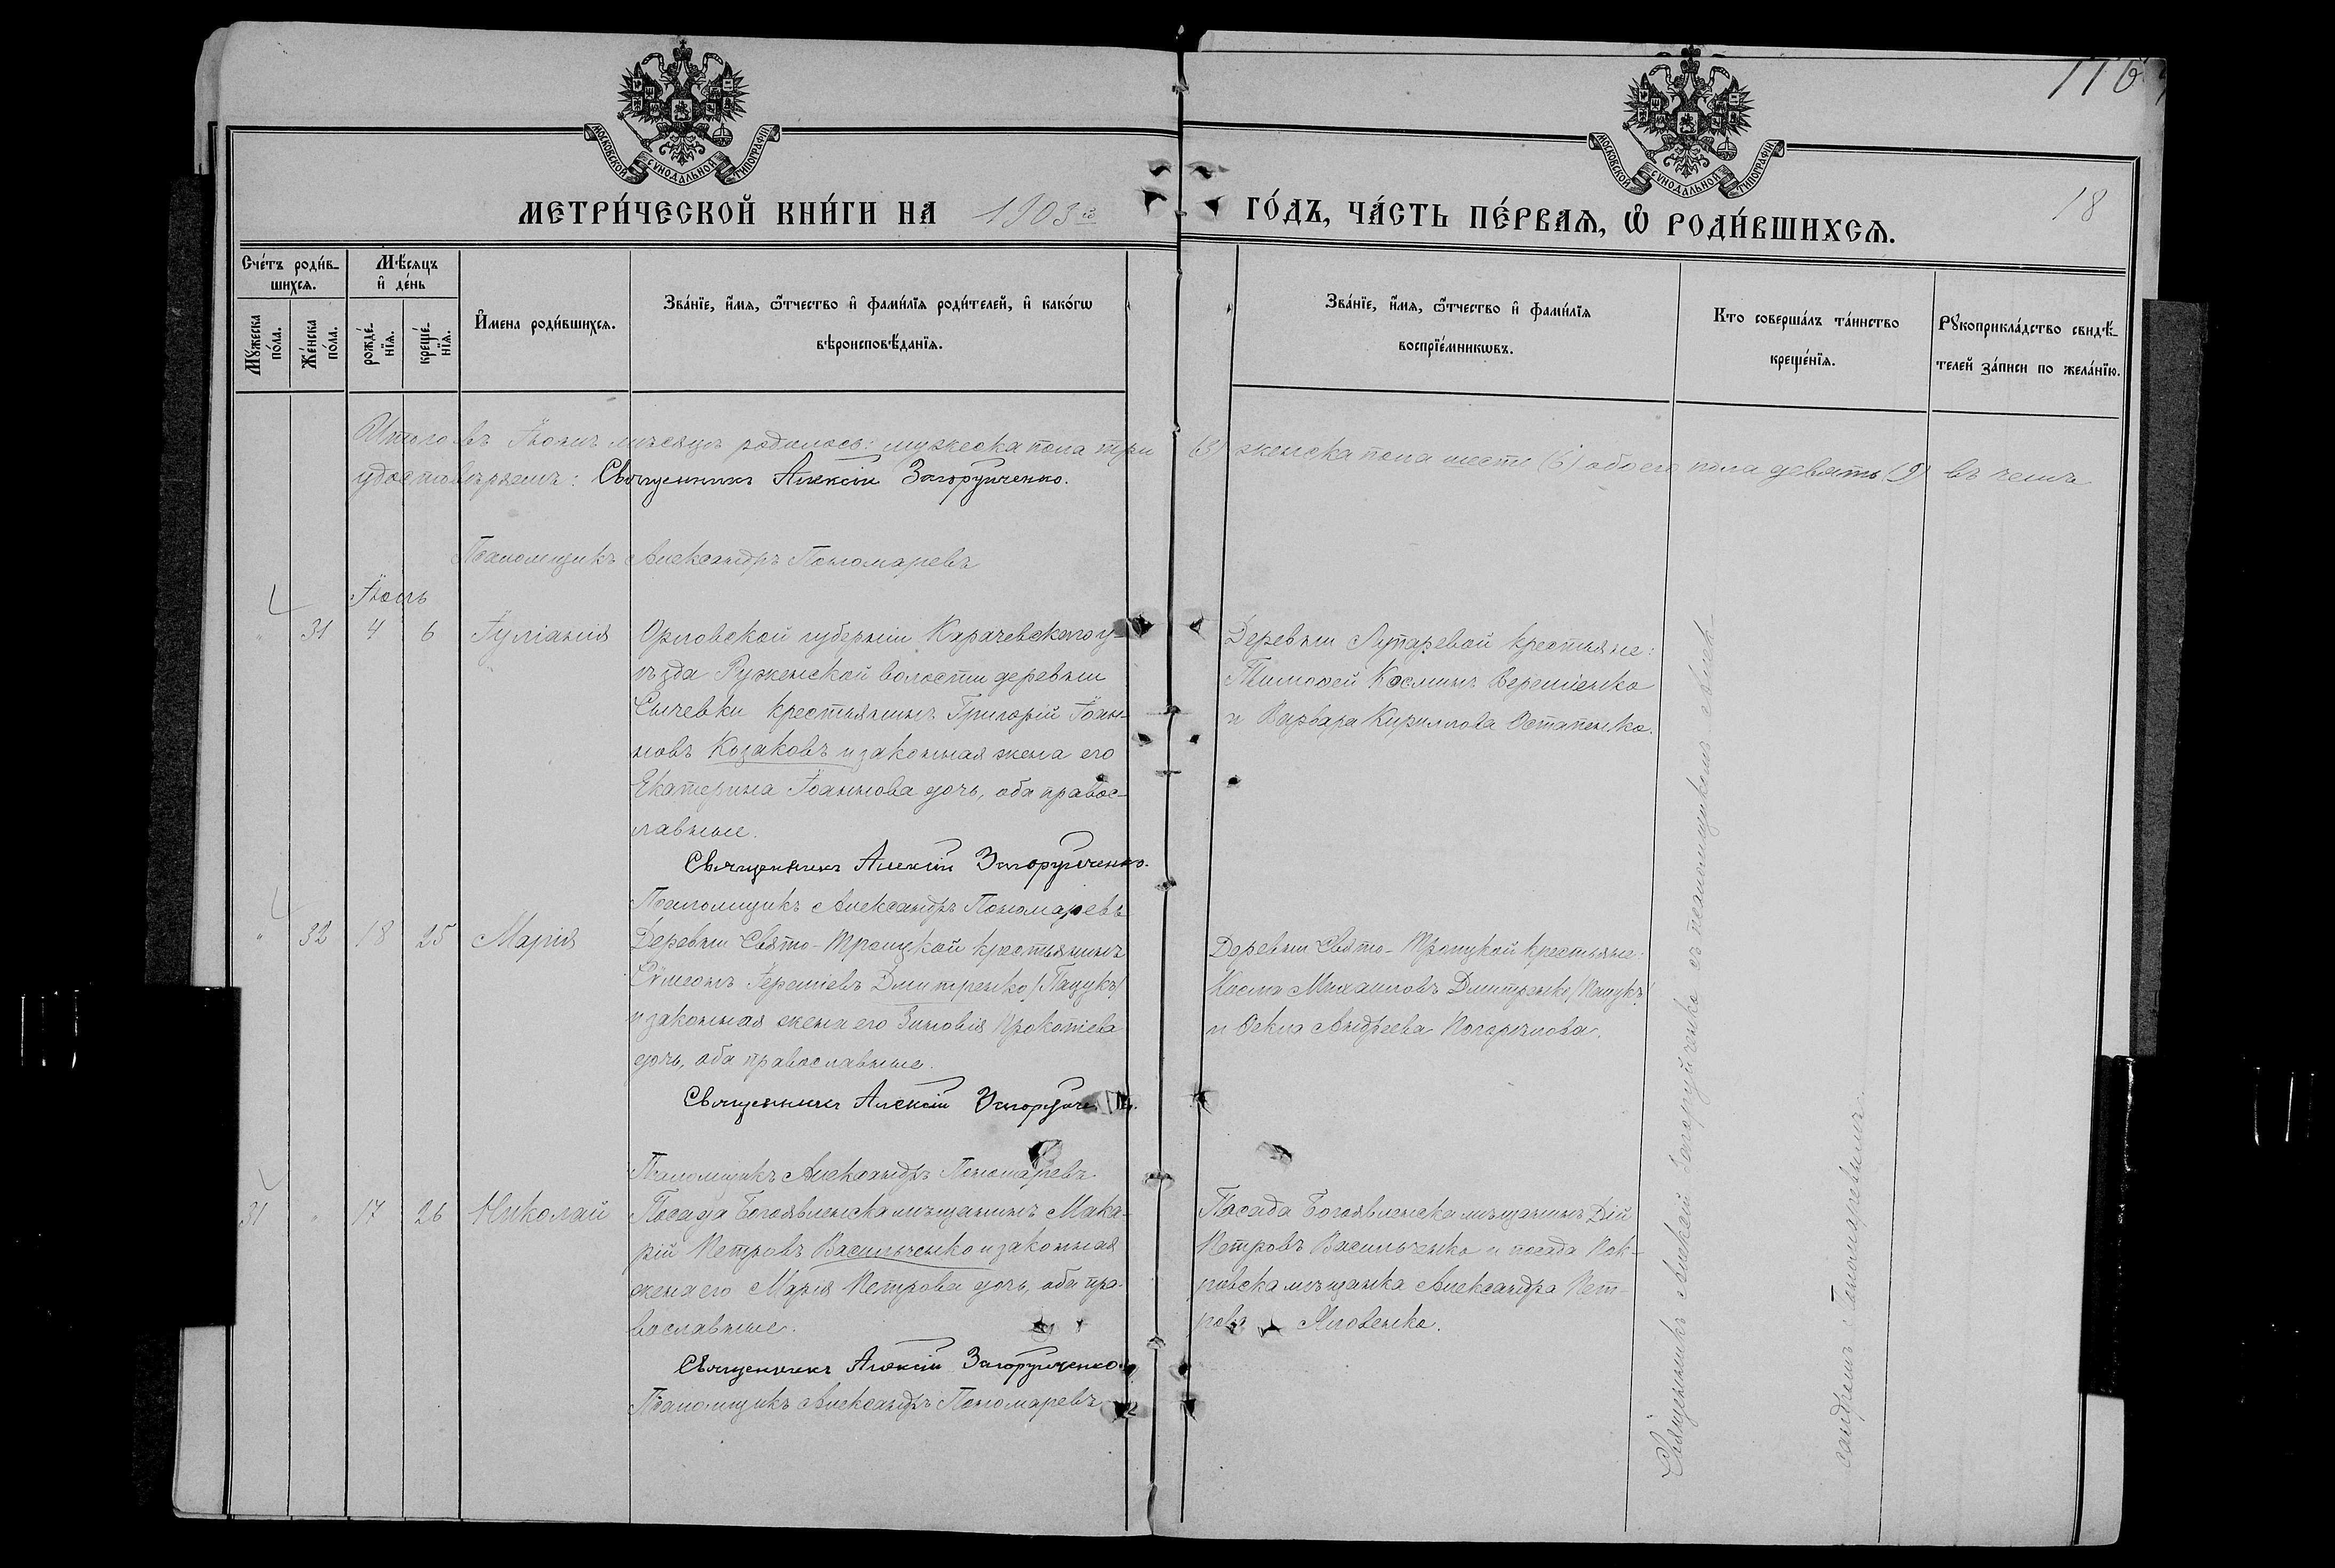 МОСКОВСКОЙ СѴНОДАЛЬНОЙ ТИПОГРАФІИ
МОСКОВСКОЙ СѴНОДАЛЬНОЙ ТИПОГРАФІИ
1767
18
МЕТРИ́ЧЕСКОЙ КНИ́ГИ НА 1903й ГО́ДЪ, ЧА́СТЬ ПЕ́РВАЯ, Ѽ РОДИ́ВШИХСЯ.
Сче́тъ роди́в-
шихся.
Мꙋжеска по́ла.
Же́нска по́ла.
Мѣ́сяцъ
и҆ де́нь
рожде́-
нїя.
креще́-
нїя.
И҆́мена роди́вшихся.
Зва́нїе, и҆́мя, ѻ҆́тчество и҆ фами́лїя роди́телей, и҆ како́гѡ
вѣроисповѣ́данїя.
Зва́нїе, и҆́мя, ѻ҆́тчество и҆ фами́лїя
воспрїе́мникѡвъ.
Кто соверша́лъ та́инство
креще́нїя.
Рꙋкоприкла́дство свидѣ́-
телей за́писи по жела́нїю.
Итого въ Іюнѣ мѣсяцѣ родилось: мужеска пола три (3) женска пола шесть (6) обоего пола девять (9) въ чемъ
удостовѣряемъ: Священникъ Алексій Загоруйченко.
Псаломщикъ Александръ Пономаревъ
Іюль
" 31 4 6 Іуліанія
Орловской губерніи Карачевскаго у-
ѣзда Руженской волости деревни
Сычевки крестьянинъ Григорій Іоан-
новъ Козаковъ и законная жена его
Екатерина Іоаннова дочь, оба правос-
лавные.
Священникъ Алексій Загоруйченко.
Псаломщикъ Александръ Пономаревъ
Деревни Лупаревой крестьяне:
Тимоѳей Косминъ Веремѣенко
и Варвара Кириллова Остапенко.
" 32 18 25 Марія
Деревни Свято-Троицкой крестьянинъ
Сѵмеонъ Іереміевъ Дмитренко /Пацукъ/
и законная жена его Зиновія Прокопіева
дочь, оба православные.
Священникъ Алексій Загоруйче
Псаломщикъ Александръ Пономаревъ
Деревни Свято-Троицкой крестьяне:
Косма Михаиловъ Дмитренко /Пацукъ/
и Ѳекла Андреева Погорѣлова.
31 " 17 26 Николай
Посада Богоявленска мѣщанинъ Мака-
рій Петровъ Васильченко и законная
жена его Марія Петрова дочь, оба пра-
вославные.
Священникъ Алексій Загоруйченко.
Псаломщикъ Александръ Пономаревъ
Посада Богоявленска мѣщанинъ Дій
Петровъ Васильченко и посада Пок-
ровска мѣщанка Александра Пет-
рова Яловенко.
Священникъ Алексій Загоруйченко съ псаломщикомъ Алек-
сандромъ Пономаревымъ.